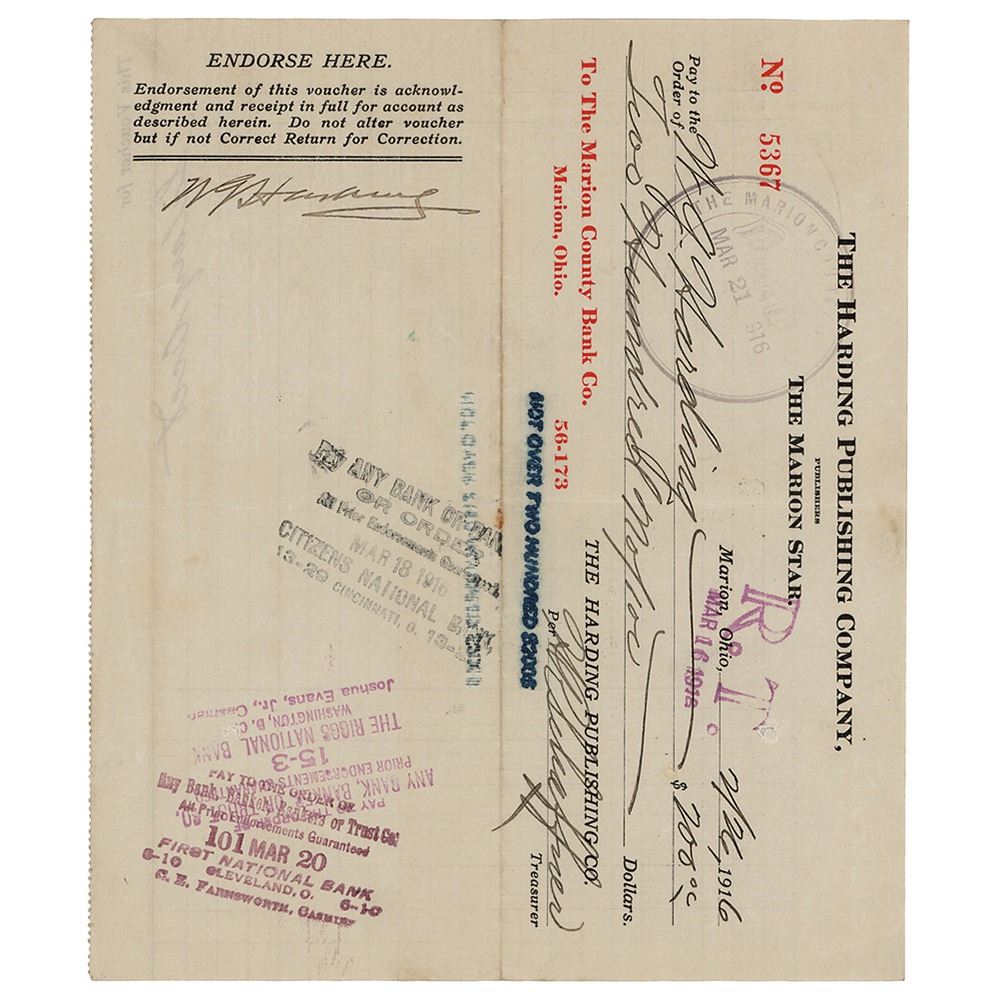 ENDORSE HERE.
Endorsement of this voucher is acknowl-
edgment and receipt in full for account as
described herein. Do not alter voucher
but if not Correct Return for Correction.
WGHarding
PAY ANY BANK OR
OR ORDER
All Prior Endorsements
MAR 18 1916
CITIZENS NATIONAL BANK
13-29 CINCINNATI, O. 13-
PAY
ANY BANK, BANKER
PRIOR ENDORSEMENTS
15-3
THE RIGGS NATIONAL BANK
WASHINGTON, D. C.
Joshua Evans, Jr., Cashier.
PAY TO THE ORDER OF
Any Bank, Banker, Bankers or Trust Co.
All Prior Endorsements Guaranteed
101 MAR 20
FIRST NATIONAL BANK
6-10 CLEVELAND, O. 6-10
C. E. FARNSWORTH, CASHIER
THE HARDING PUBLISHING COMPANY,
PUBLISHERS
THE MARION STAR.
R. T.
MAR 16 1916
No 5367
THE MARION C
MAR 21 1916
Marion, Ohio, 1916
Pay to the
Order of W.G. Harding $ 200 oc
Two Hundred Dollars.
To The Marion County Bank Co.
Marion, Ohio. 56-173
THE HARDING PUBLISHING CO.
NOT OVER TWO HUNDRED $200$
Per Treasurer